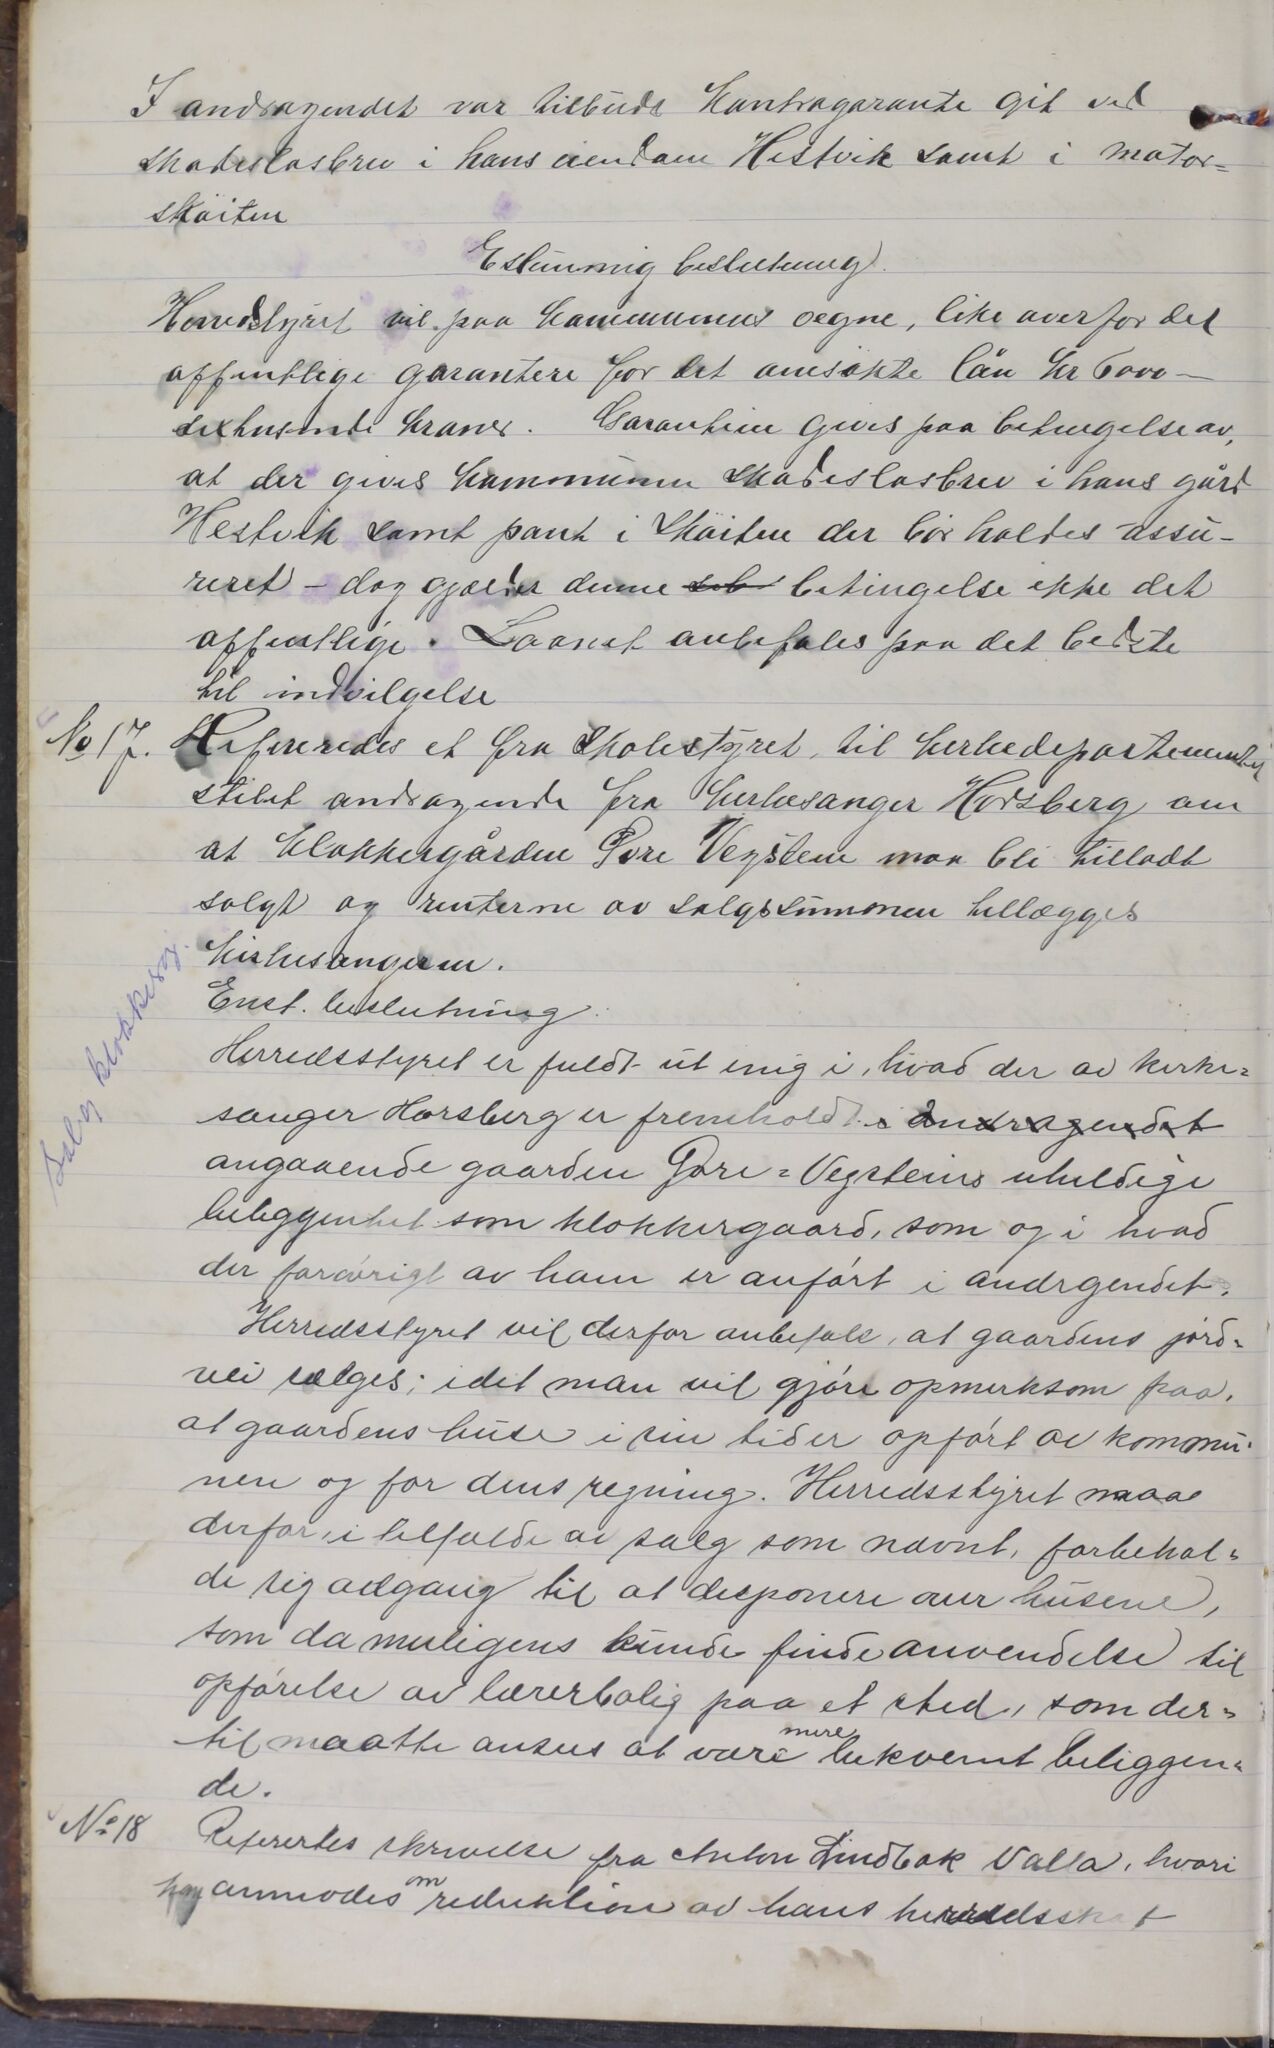 I andragendet var tilbudt Kontragarante git ved
skadeslosbrev i hans eiendom Hestvik samt i motor=
skøiten
Estimmig beslutning.
Herredstyret vil paa kommunens vegne, like overfor det
offentlige garantere for det ansøkte lån kr 6000 —
sextusinde kroner. Garantien gives paa betingelse av,
at der gives kommunen skadeslosbrev i hans gård
Hestvik samt pant i skøiten der bør holdes assu-
reret – dog gjælder denne betingelse ikke det
offentlige. Laanet anbefales paa det bedste
til indvilgelse
No 17. Refereredes et fra skolestyret, til kirkedepartementet
stilet andragende fra kirkesanger Horsberg om
at klokkergården Øvre Vegstein maa bli tilladt
solgt og renterne av salgssummen tillægges
kirkesangeren.
Salg klokkergj.
Enst. beslutning.
Herredsstyret er fuldt ut enig i, hvad der av kirke=
sanger Horsberg er fremholdt i andragendet
angaaende gaarden Øvre=Vegsteins uheldige
beliggenhet som klokkergaard, som og i hvad
der forøvrigt av ham er anført i andrgendet.
Herredsstyret vil derfor anbefale, at gaardens jord=
vei sælges; idet man vil gjøre opmerksom paa,
at gaardens huse i sin tid er opført av kommu=
nen og for dens regning. Herredsstyret maa
derfor, i tilfælde av salg som nævnt, forbehol=
de sig adgang til at disponere over husene,
som da muligens kunde finde anvendelse til
opførelse av lærerbolig paa et sted, som der=
til maatte anses at være mere bekvemt beliggen=
de.
No 18 Refertes skrivelse fra Anton Lindbak Valla, hvori
han anmodes om reduktion av hans herredsskat